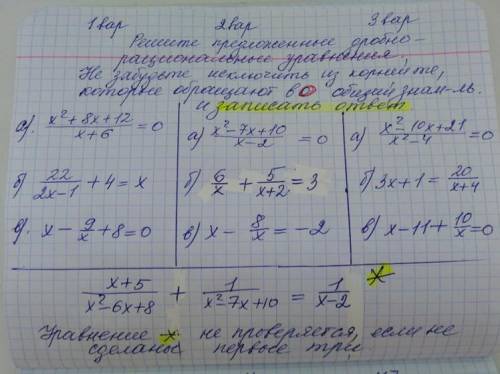 1 вар 2 вар 3 вар
Решите предложенные дробно-
рациональные уравнения,
Не забудьте исключить из корней те,
которые обращают в 0 общий знам-ль.
и записать ответ
а). (x²+8x+12)/(x+6) = 0
б) 22/(2x-1) + 4 = x
в). x - 9/x + 8 = 0
а) (x²-7x+10)/(x-2) = 0
б) 6/x + 5/(x+2) = 3
в) x - 8/x = -2
а) (x²-10x+21)/(x²-4) = 0
б) 3x+1 = 20/(x+4)
в) x-11+ 10/x = 0
(x+5)/(x²-6x+8) + 1/(x²-7x+10) = 1/(x-2) *
Уравнение * не проверяется, если не
сделаны первые три